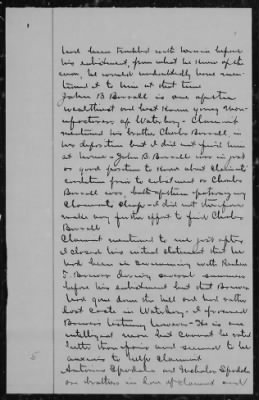 had been troubled with hernia before
his enlistment, from what he knew of the
case, he would undoubtedly have men-
tioned it to him at that time
John B. Burrall is one of the
wealthiest and best known young Man-
ufacturers of Waterbury - Claimant
mentioned his brother Charles Burrall, in
his deposition but I did not find him
at home - John B. Burrall was in just
as good position to know about Claimants
condition prior to enlistment as Charles
Burrall was, both of them
Claimants I did not therefore
make any further effort to find Charles
Burrall
Claimant mentioned to me just after
I closed his initial statement that he
had been in swimming with
Bowers during several summers
before his enlistment but that Bowers
had gone down the hill and had rather
lost caste in Waterbury - I procured
Bowers testimony however - He is an
intelligent man but cannot be rated
better than fair and seemed to be
anxious to help Claimant
Antoinine and Nicholas
are brothers in law of claimant and
5